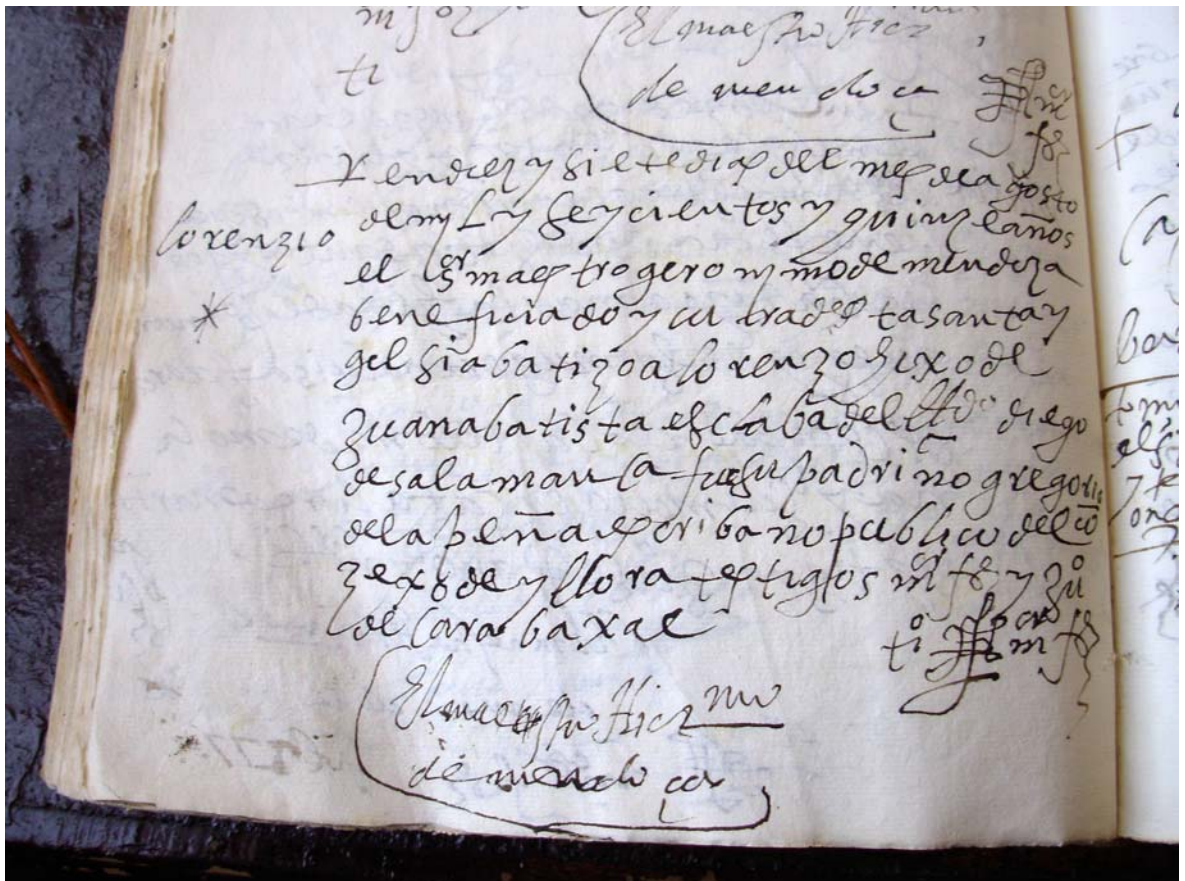 El maestro Hier
de mendoça
ti
lorenzio
en diez y siete dias del mes de agosto
de myL y seycientos y quinze años
el sr maestro geronymo de mendoza
beneficiado y cura desta santa y
glesia batizo a lorenzo hixo de
zuana batista esclaba del lldo diego
de salamanca fue su padrino gregorio
de la peña escribano publico del co
zexo de yllora testigos y zu
de carabaxal
El maestro Hiermo
de mendoça